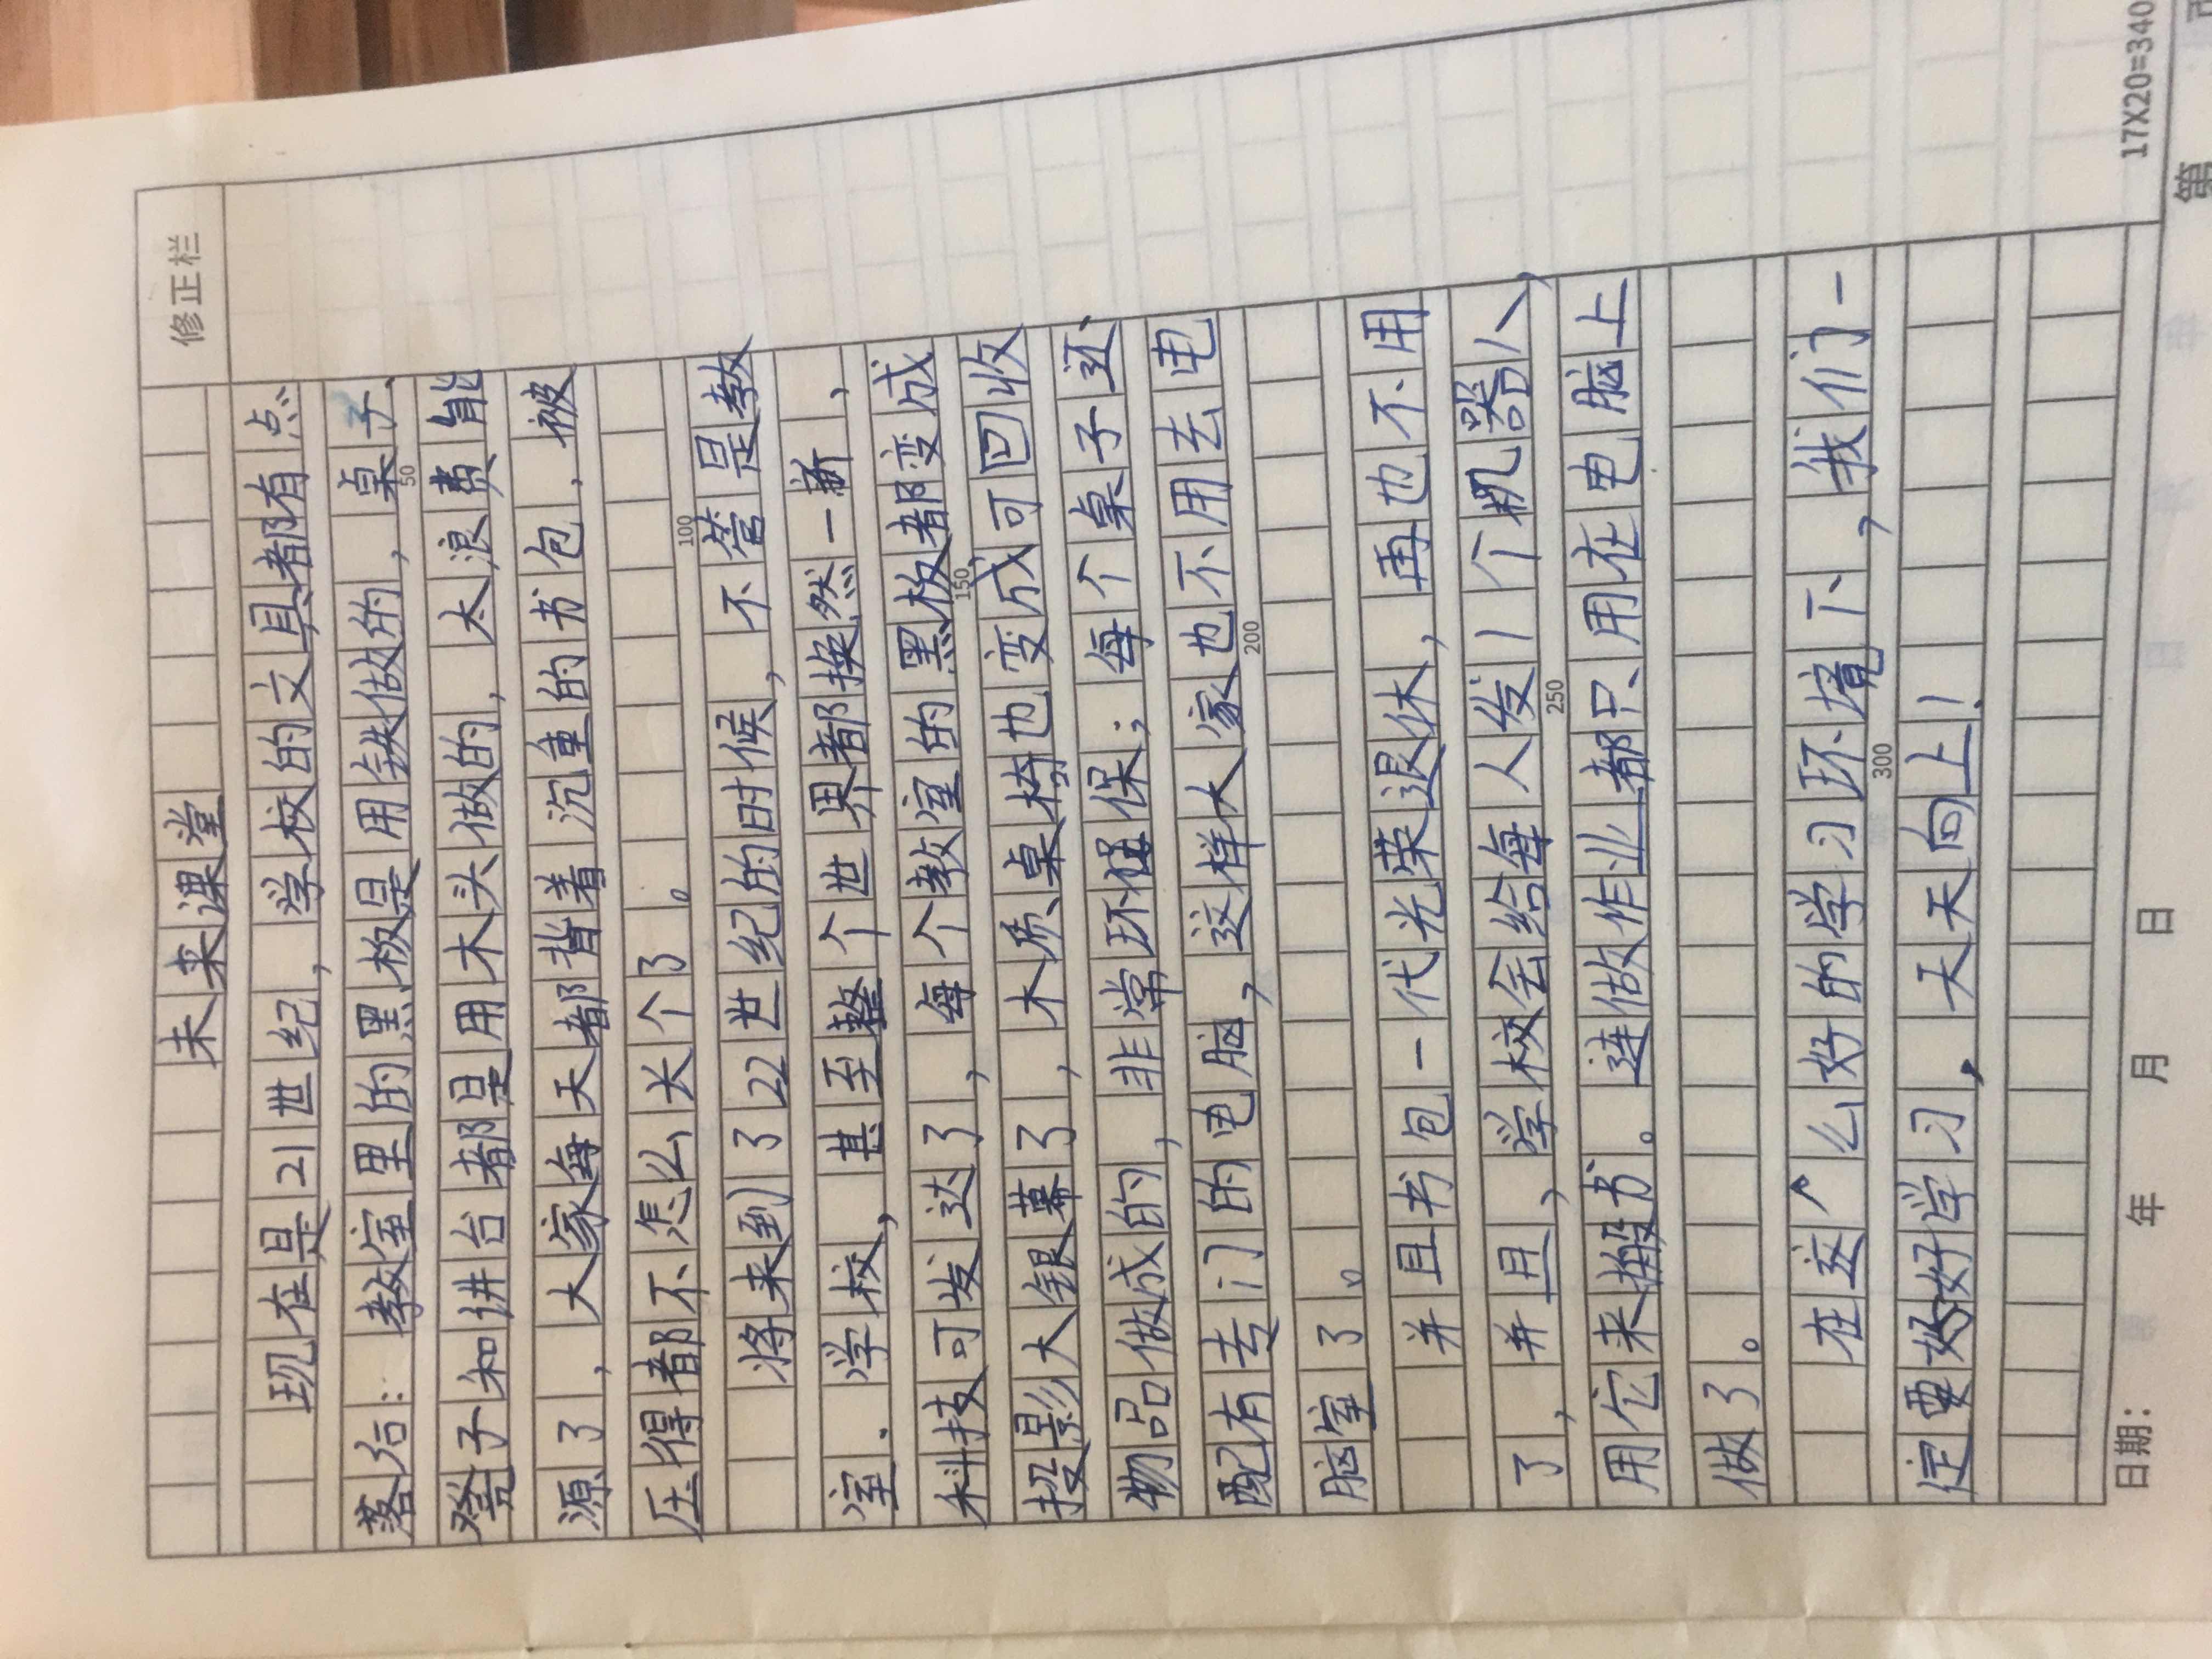 修正栏
未来课堂
现在是21世纪，学校的文具都有点
落后：教室里的黑板是用铁做的，桌子、
凳子和讲台都是用木头做的，太浪费能
源了，大家每天都背着沉重的书包，被
压得都不怎么长个了。
将来到了22世纪的时候，不管是教
室、学校，甚至整个世界都换然一新，
科技可发达了，每个教室的黑板都变成
投影大银幕了，木质桌椅也变成可回收
物品做成的，非常环保；每个桌子还
配有专门的电脑，这样大家也不用去电
脑室了。
并且书包一代光荣退休，再也不用
了，并且，学校会给每人发1个机器人，
用它来搬书。连做作业都只用在电脑上
做了。
在这个么好的学习环境下，我们一
定要好好学习，天天向上！
50
100
150
200
250
300
日期： 年 月 日
17X20=340
第